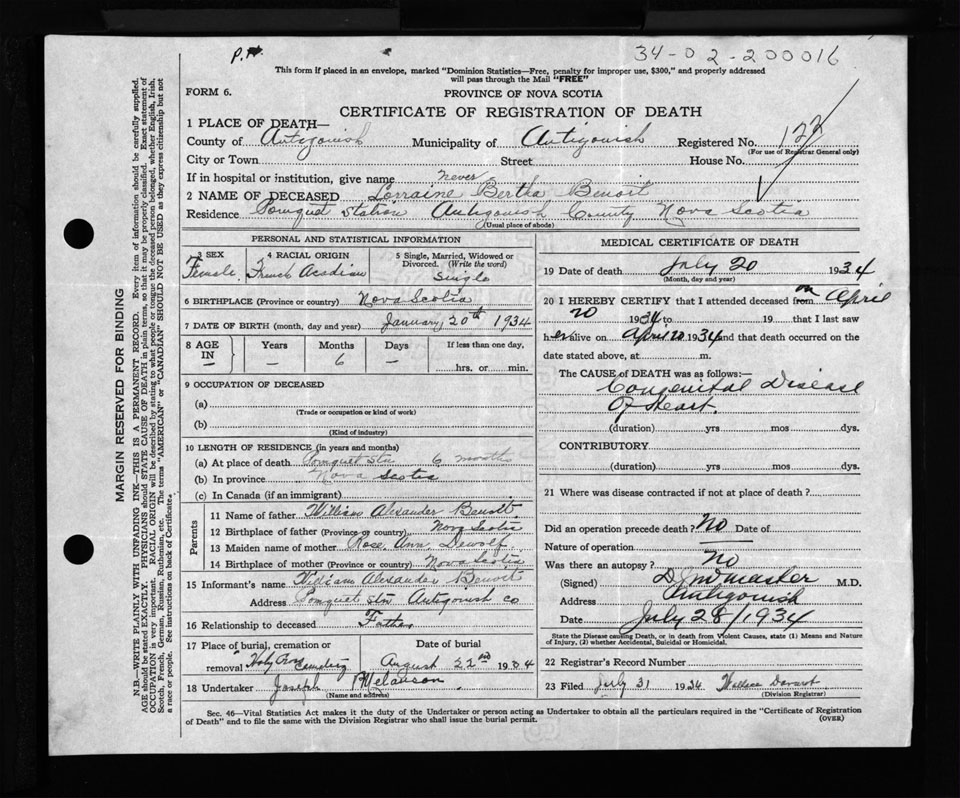 P.H.
34-02-200016
This form if placed in an envelope, marked "Dominion Statistics—Free, penalty for improper use, $300," and properly addressed
will pass through the Mail "FREE"
FORM 6.
PROVINCE OF NOVA SCOTIA
CERTIFICATE OF REGISTRATION OF DEATH
1 PLACE OF DEATH—
County of Antigonish Municipality of Antigonish Registered No. 122
(For use of Registrar General only)
City or Town Street House No.
If in hospital or institution, give name never
2 NAME OF DECEASED Lorraine Bertha Benoit
Residence Pomquet Station Antigonish County Nova Scotia
(Usual place of abode)
PERSONAL AND STATISTICAL INFORMATION
3 SEX Female
4 RACIAL ORIGIN French Acadian
5 Single, Married, Widowed or Divorced. (Write the word) Single
6 BIRTHPLACE (Province or country) Nova Scotia
7 DATE OF BIRTH (month, day and year) January 20th 1934
8 AGE IN Years Months Days If less than one day,
— — 6 — hrs. or min.
9 OCCUPATION OF DECEASED
(a)
(Trade or occupation or kind of work)
(b)
(Kind of industry)
10 LENGTH OF RESIDENCE (in years and months)
(a) At place of death Pomquet Stn 6 month
(b) In province Nova Scotia
(c) In Canada (if an immigrant)
Parents
11 Name of father William Alexander Benoit
12 Birthplace of father (Province or country) Nova Scotia
13 Maiden name of mother Rose Ann Dewolf
14 Birthplace of mother (Province or country) Nova Scotia
15 Informant's name William Alexander Benoit
Address Pomquet Stn Antigonish Co
16 Relationship to deceased Father
17 Place of burial, cremation or removal Holy Cemetery
Date of burial August 22nd 1934
18 Undertaker Joseph Melanson
(Name and address)
MEDICAL CERTIFICATE OF DEATH
19 Date of death July 20 1934
(Month, day and year)
20 I HEREBY CERTIFY that I attended deceased from on April
20 1934 to 19 that I last saw
her alive on April 20 1934 and that death occurred on the
date stated above, at m.
The CAUSE OF DEATH was as follows:—
Congenital Disease
Of Heart.
(duration) yrs mos dys.
CONTRIBUTORY
(duration) yrs mos dys.
21 Where was disease contracted if not at place of death?
Did an operation precede death? No Date of
Nature of operation
Was there an autopsy? No
(Signed) M.D.
Address Antigonish
Date July 28/1934
State the Disease causing Death, or in death from Violent Causes, state (1) Means and Nature
of Injury, (2) whether Accidental, Suicidal or Homicidal.
22 Registrar's Record Number
23 Filed July 31 1934 Wallace
(Division Registrar)
Sec. 46—Vital Statistics Act makes it the duty of the Undertaker or person acting as Undertaker to obtain all the particulars required in the "Certificate of Registration
of Death" and to file the same with the Division Registrar who shall issue the burial permit.
(OVER)
MARGIN RESERVED FOR BINDING
N.B.—WRITE PLAINLY WITH UNFADING INK—THIS IS A PERMANENT RECORD. Every item of information should be carefully supplied.
AGE should be stated EXACTLY. PHYSICIANS should STATE CAUSE OF DEATH in plain terms, so that it may be properly classified. Exact statement of
OCCUPATION is very important. RACIAL ORIGIN will be described by stating to what people or tongue the deceased person belonged, whether English, Irish,
Scotch, French, German, Russian, Ruthenian, etc. The terms "AMERICAN" or "CANADIAN" SHOULD NOT BE USED as they express citizenship but not
a race or people. See instructions on back of Certificate.